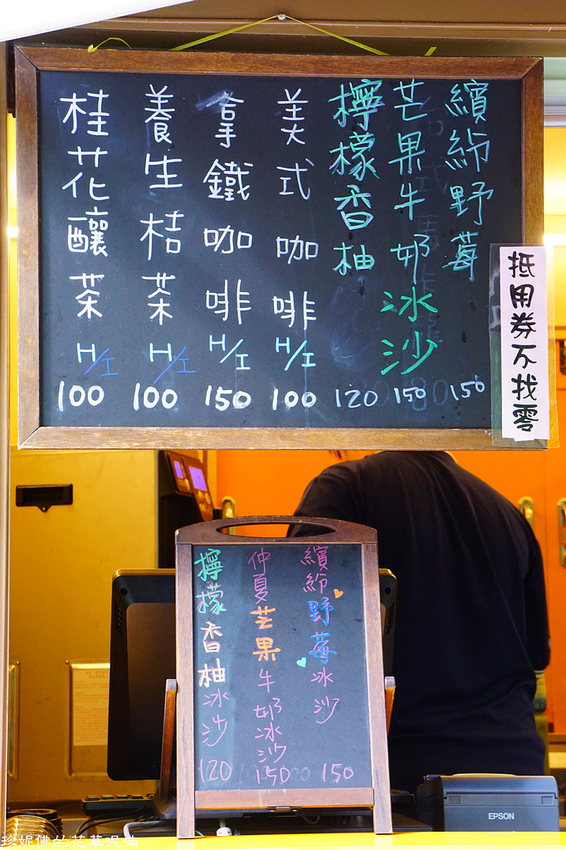 繽紛野莓
150
芒果牛奶冰沙
150
檸檬香柚
120
美式咖啡
H/I
100
拿鐵咖啡
H/I
150
養生桔茶
H/I
100
桂花釀茶
H/I
100
抵用券不找零
繽紛野莓冰沙
150
仲夏芒果牛奶冰沙
150
檸檬香柚冰沙
120
EPSON
珍妮佛的花草泥偶